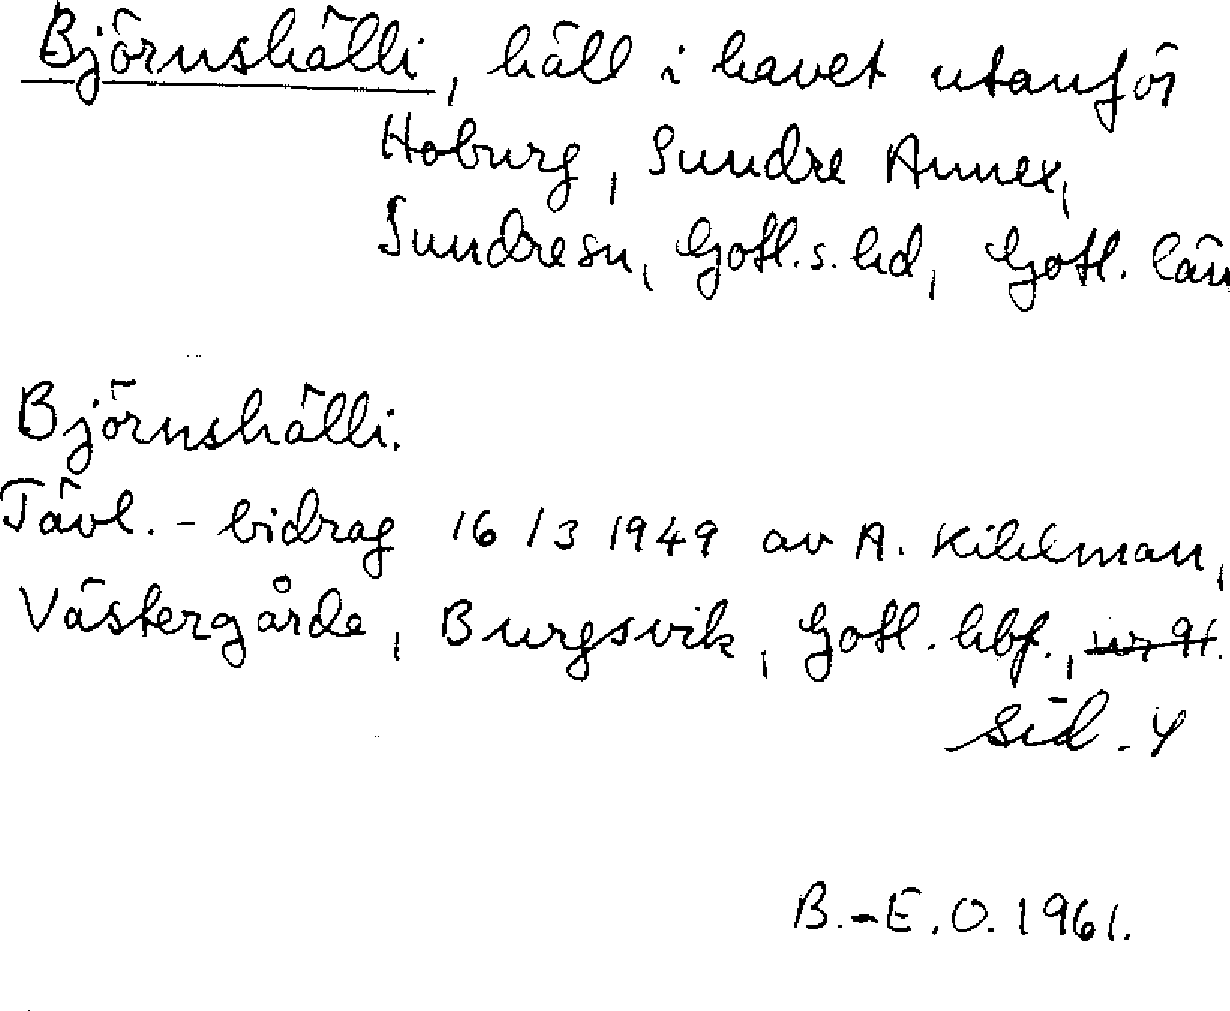 Björnshälli, häll i havet utanför
Hoburg, Sundre Annex,
Sundresn, Gotl.s.hd, Gotl. län
Björnshälli.
Tävl. - bidrag 16/3 1949 av A. Kihlman,
Västergårde, Burgsvik, Gotl. hbf.,
sid. 4
B.-E. O. 1961.